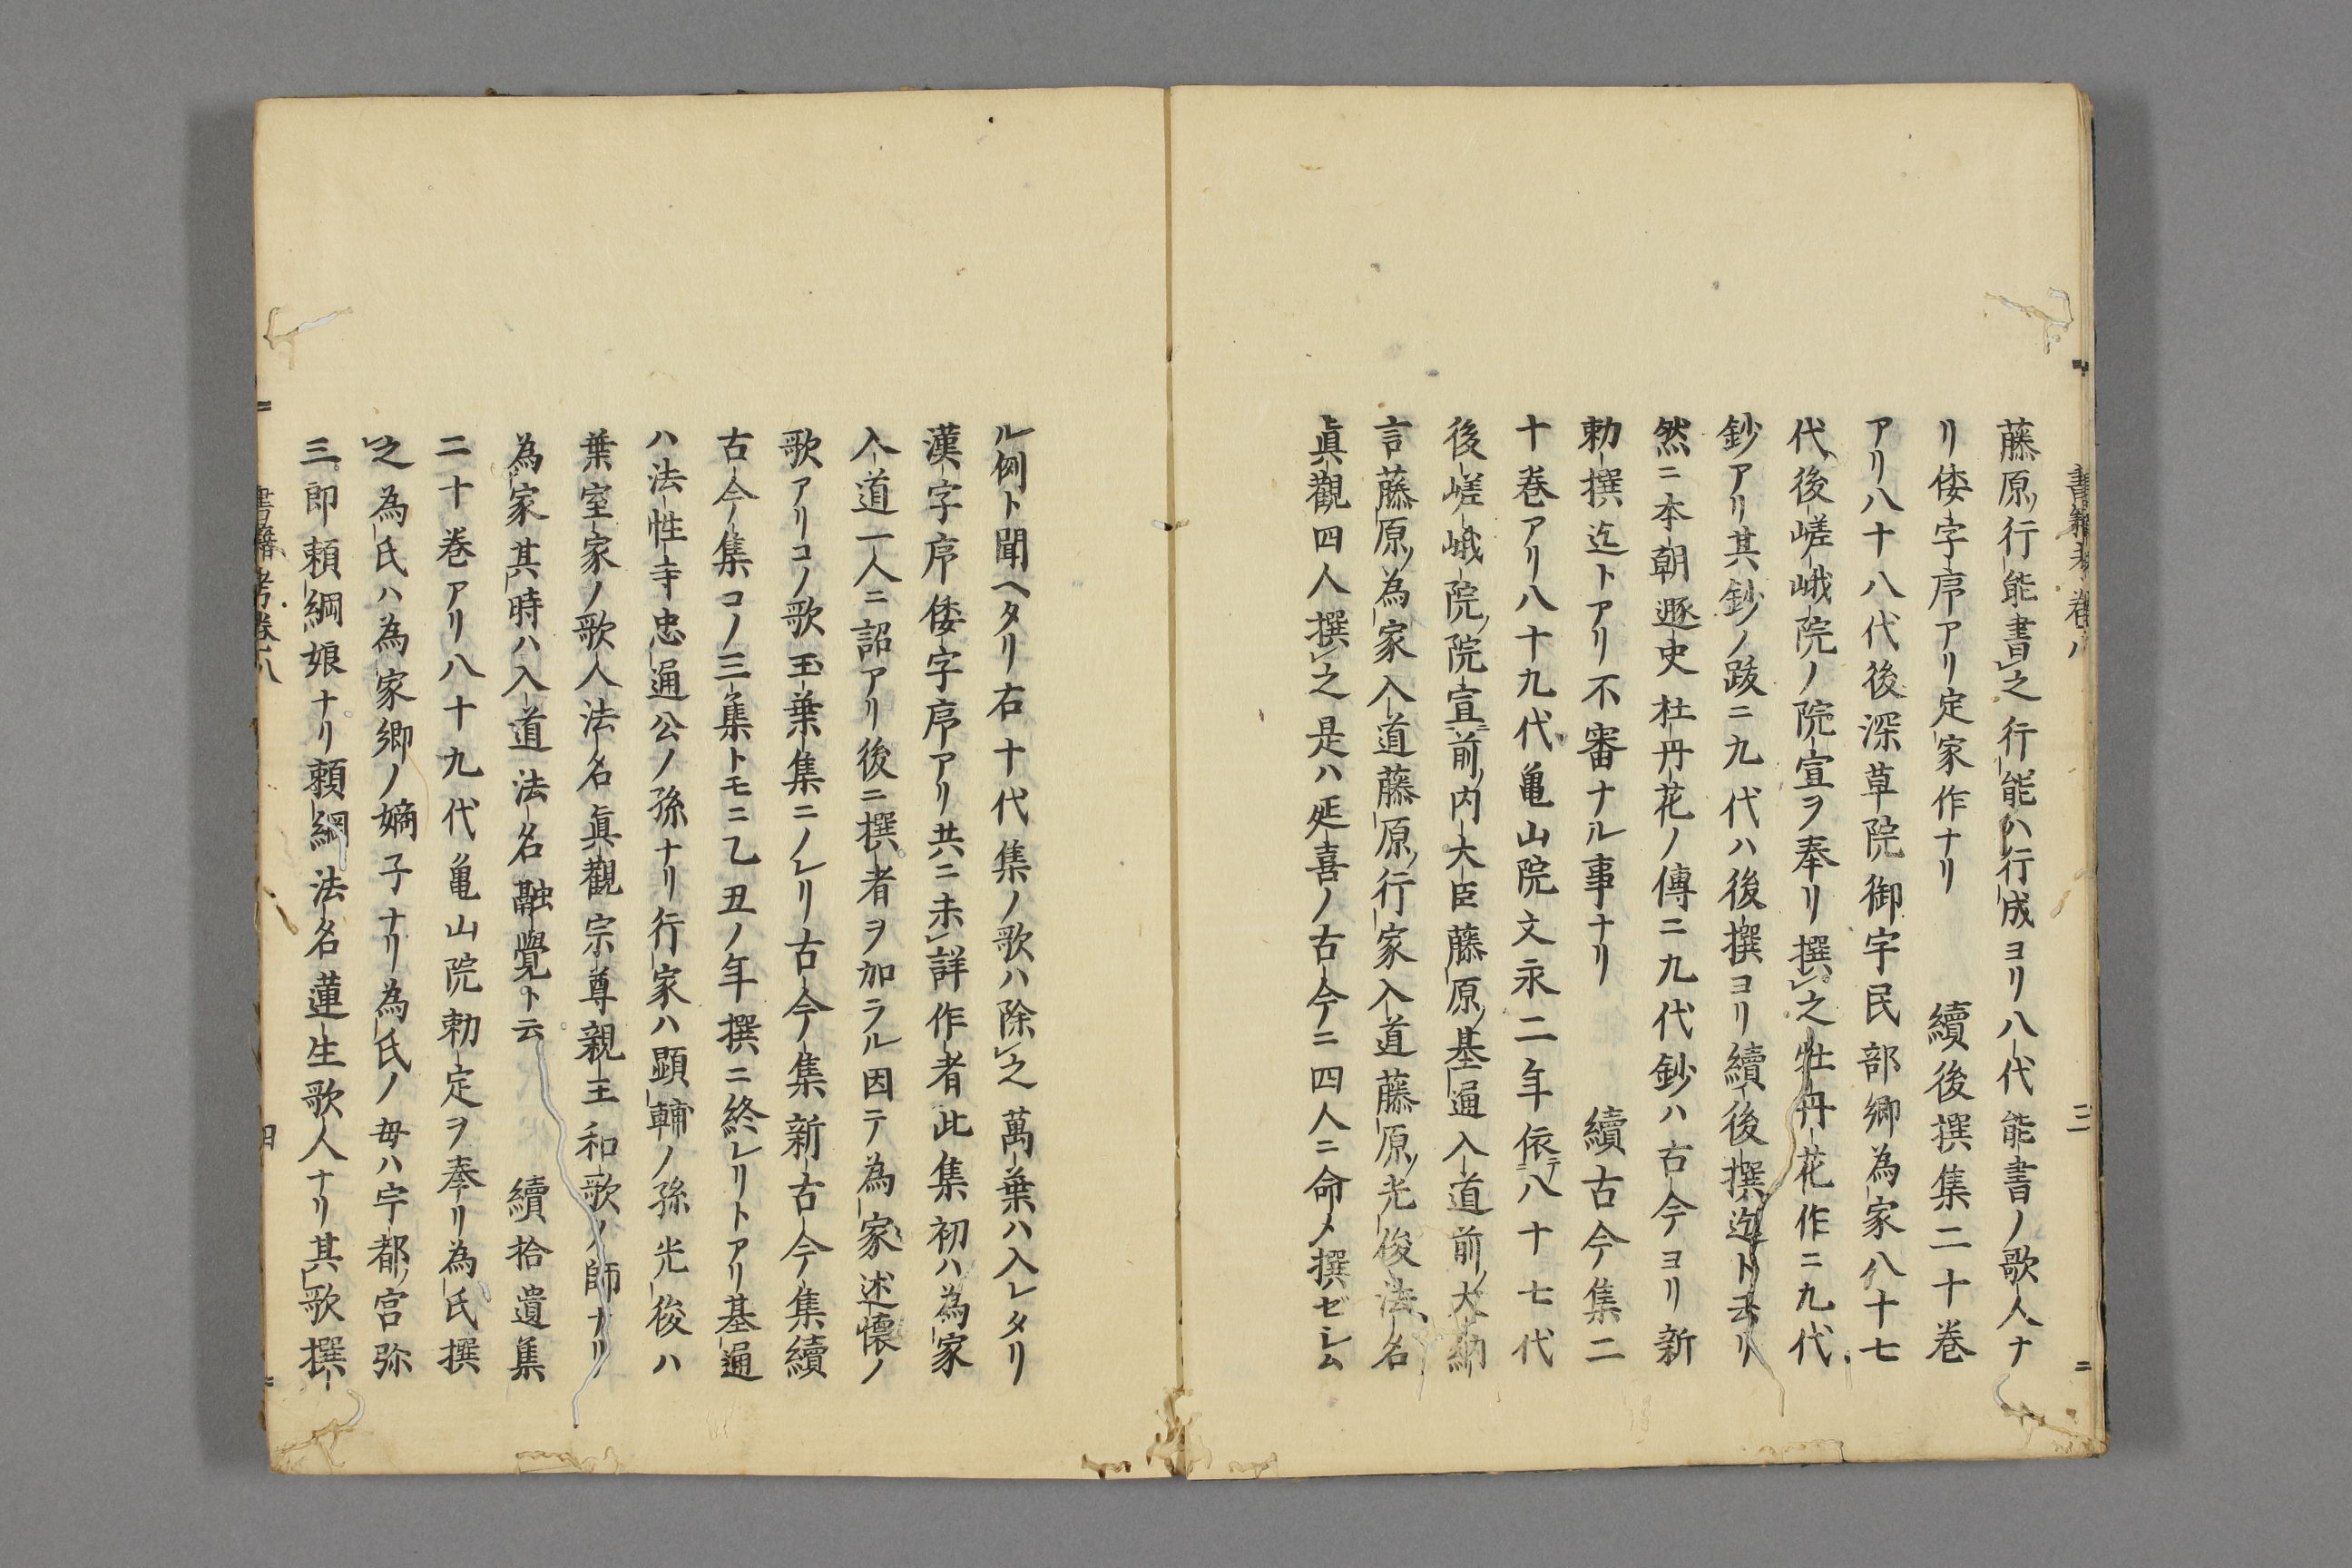 書籍考卷八 三
藤原ノ行能書之行能ハ行成ヨリ八代能書ノ歌人ナ
リ倭字序アリ定家作ナリ 續後撰集二十巻
アリ八十八代後深草院御宇民部卿為家八十七
代後嵯峨院ノ院宣ヲ奉リ撰之牡丹花作ニ九代
鈔アリ其鈔ノ跋ニ九代ハ後撰ヨリ續後撰迄ト云リ
然ニ本朝遯史牡丹花ノ傳ニ九代鈔ハ古今ヨリ新
勅撰迄トアリ不審ナル事ナリ 續古今集二
十巻アリ八十九代亀山院文永二年依テ八十七代
後嵯峨院ノ院宣ニ前ノ内大臣藤原ノ基通入道前ノ大納
言藤原ノ為家入道藤原ノ行家入道藤原ノ光俊法名
眞觀四人撰之是ハ延喜ノ古今ニ四人ニ命メ撰ゼシム
ル例ト聞ヘタリ右十代集ノ歌ハ除之萬葉ハ入レタリ
漢字序倭字序アリ共ニ未詳作者此集初ハ為家
入道一人ニ詔アリ後ニ撰者ヲ加ラル因テ為家述懐ノ
歌アリコノ歌玉葉集ニノレリ古今集新古今集續
古今集コノ三集トモニ乙丑ノ年撰ニ終レリトアリ基通
ハ法性寺忠通公ノ孫ナリ行家ハ顕輔ノ孫光俊ハ
葉室家ノ歌人法名眞觀宗尊親王和歌ノ師ナリ
為家其時ハ入道法名融覺ト云 續拾遺集
二十巻アリ八十九代亀山院勅定ヲ奉リ為氏撰
之為氏ハ為家卿ノ嫡子ナリ為氏ノ母ハ宇都ノ宮弥
三郎頼綱娘ナリ頼綱法名蓮生歌人ナリ其歌撰
書籍考卷八 四